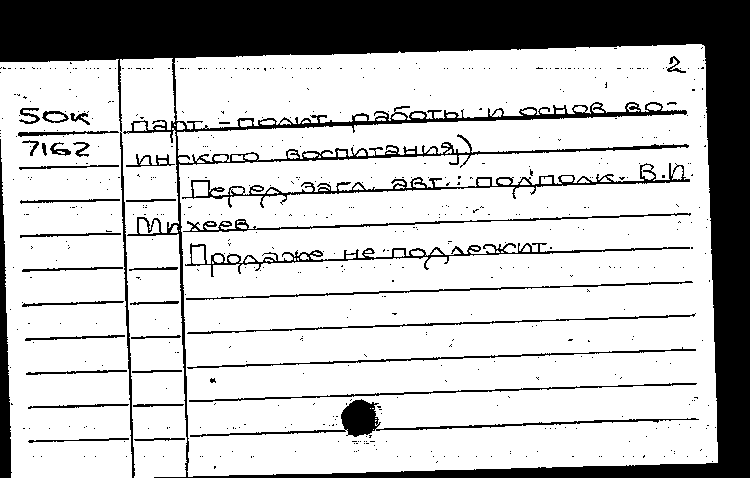 2
50к парт.-полит. работы и основ во-
7162 инского воспитания)
Перед загл. авт.: подполк. В.П.
Михеев.
Продаже не подлежит.